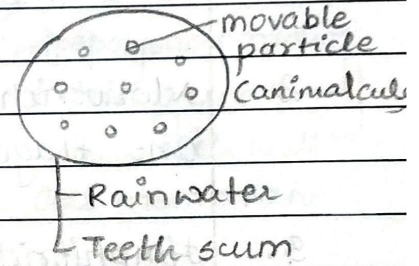 movable
particle
(animalcule
Rainwater
Teeth scum